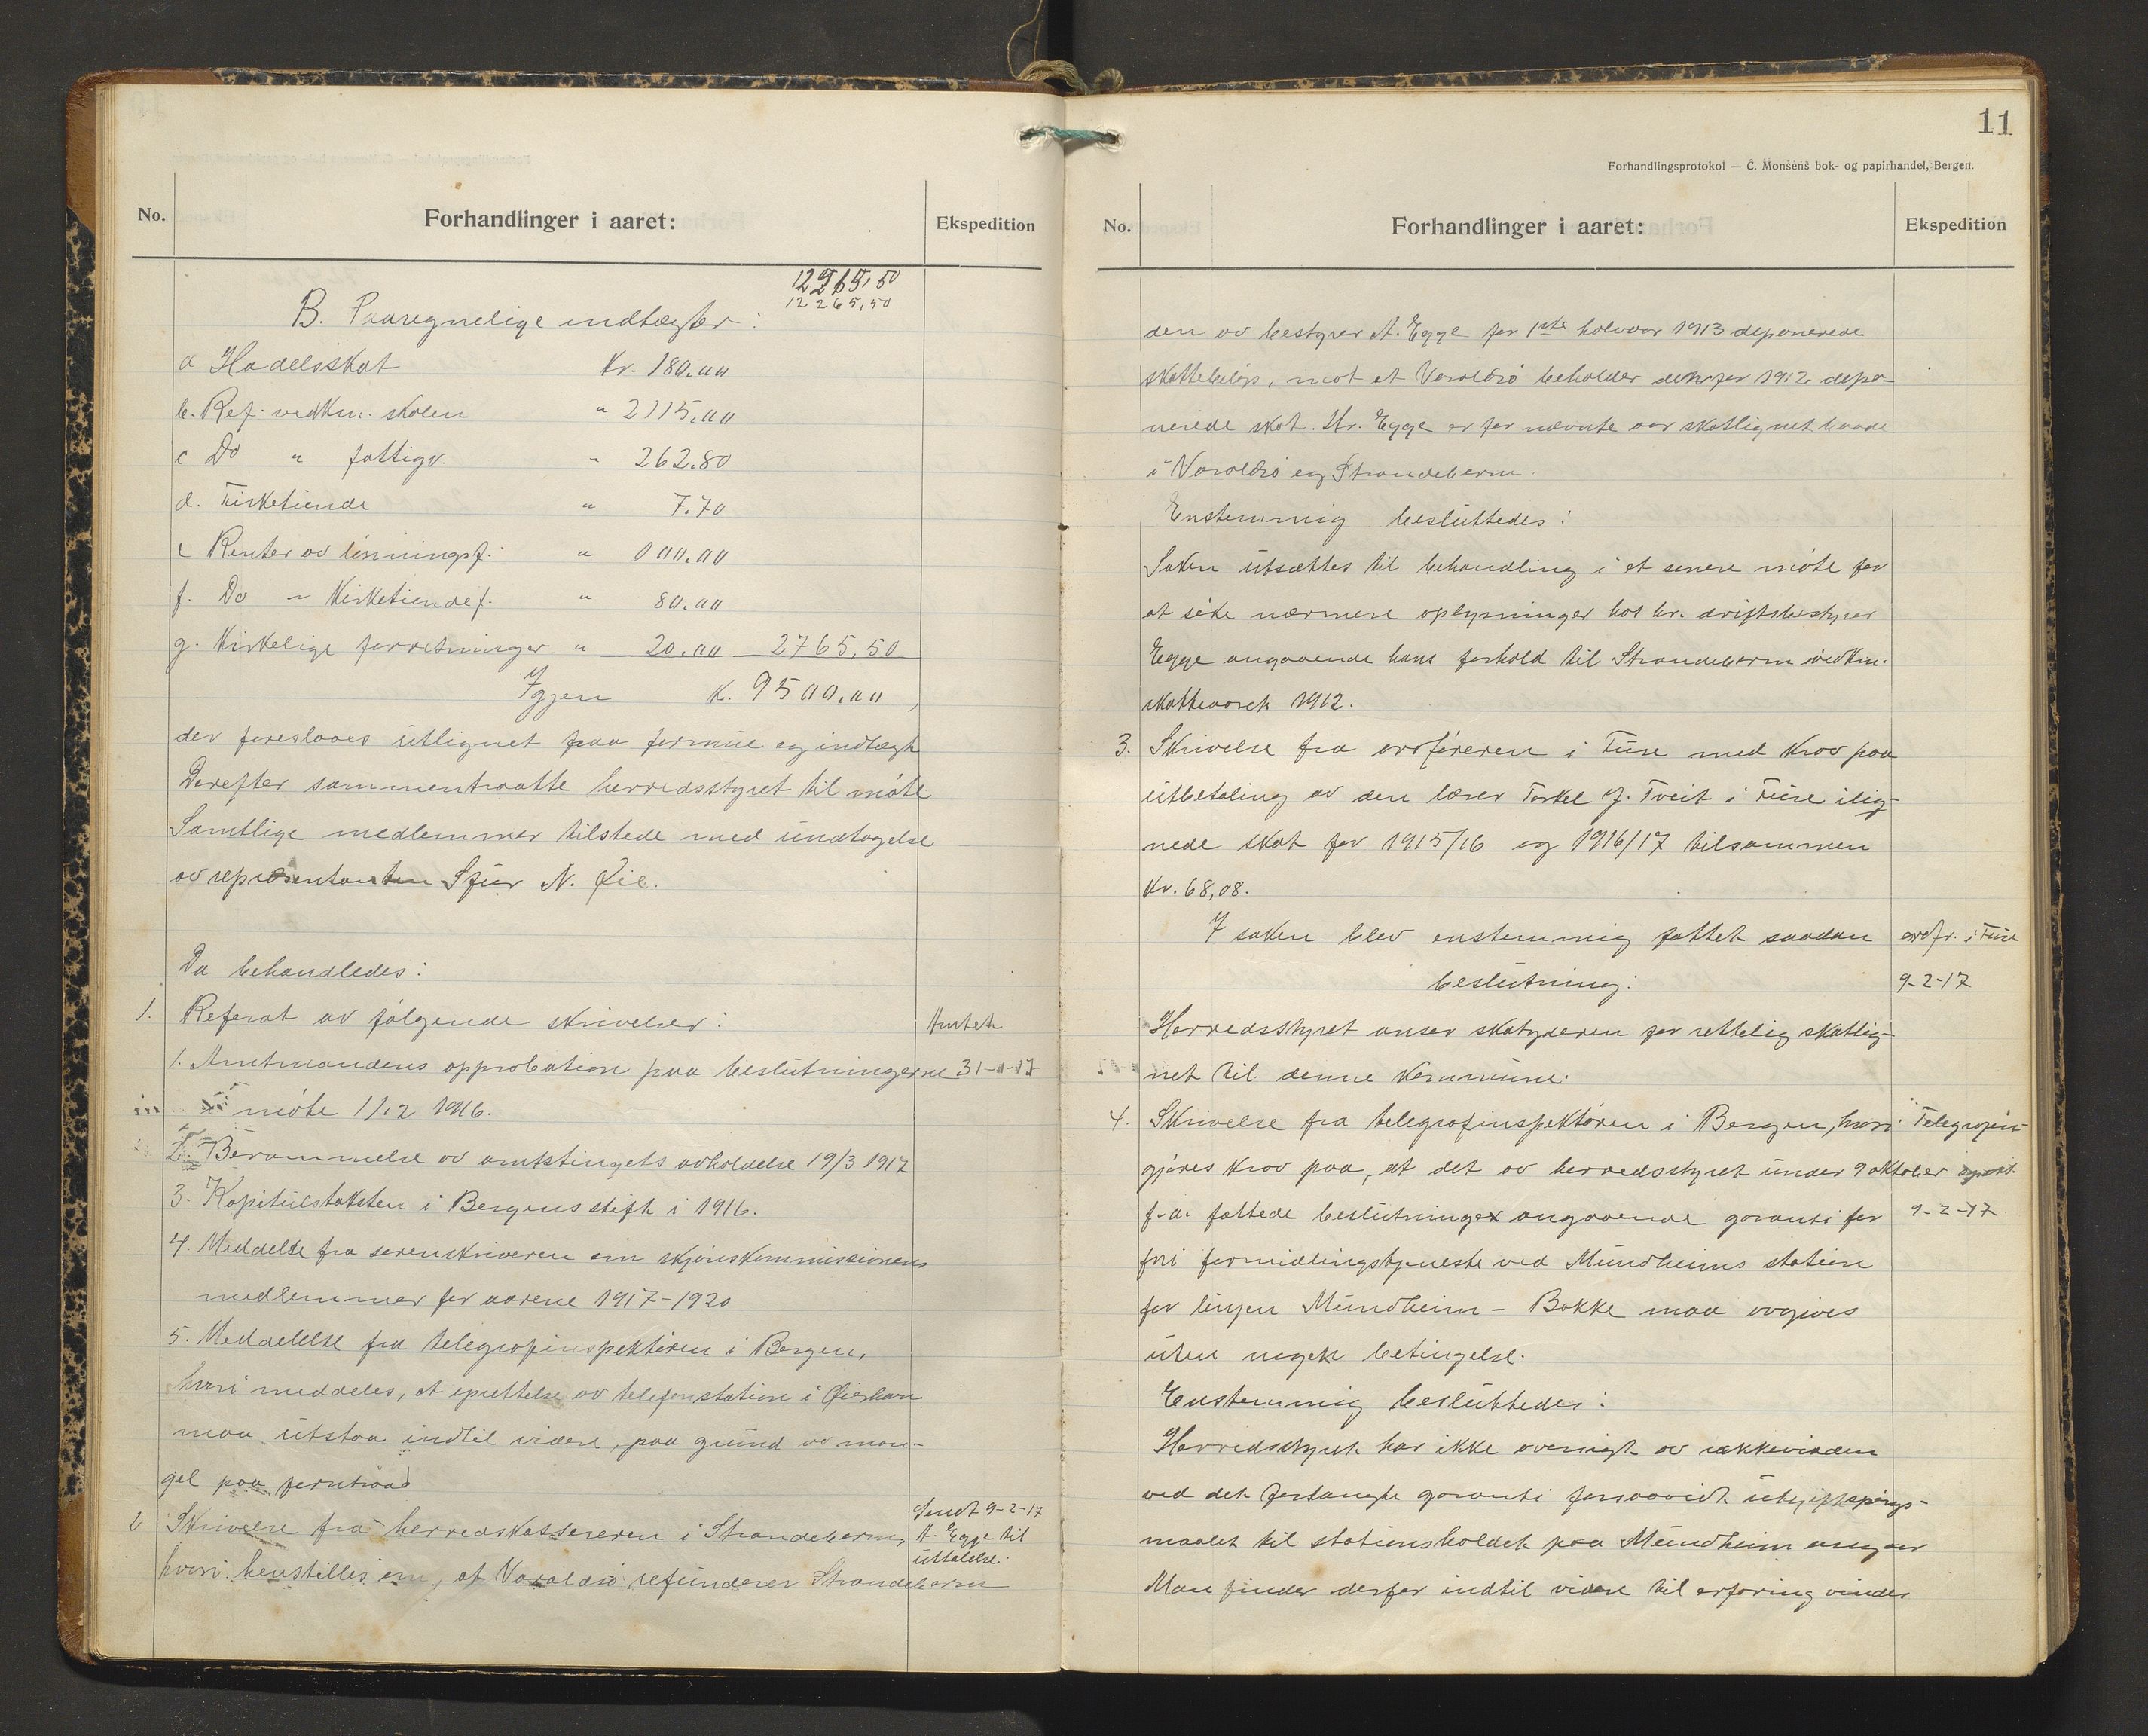 No.
Forhandlinger i aaret:
Ekspedition
12265,50
12 265,50
B. Paaregnelige indtægter:
a Hadelsskat Kr. 180.00
b. Ref. vedkm. skolen " 2115.00
c Do " fattigv. " 262.80
d. Kirketiende " 7.70
e Renter av lönningsf. " 100.00
f. Do " Kirketiendef. " 80.00
g. Kirkelige forretninger " 20.00 2765,50
Igjen K. 9500.00,
der foreslaaes utlignet paa formue og indtægt
Derefter sammentraatte herredsstyret til möte.
Samtlige medlemmer tilstede med undtagelse
av repræsentanten Sjur N. Øie.
Da behandledes:
1. Referat av følgende skrivelser: Amtet
1. Amtmandens approbation paa beslutningerne 31-1-17
i möte 1/12 1916.
2. Berammelse av amtstingets avholdelse 19/3 1917
3. Kapitulstaksten i Bergens stift i 1916.
4. Meddelse fra sorenskriveren om skjönskommissionens
medlemmer for aarene 1917-1920
5. Meddelelse fra telegrafinspektören i Bergen,
hvori meddeles, at oprettelse av telefonstation i Øierhavn
maa utstaa indtil videre, paa grund av man-
gel paa jerntraad
2 Skrivelse fra herredskassereren i Strandebarm, Sendt 9-2-17
A. Egge til
uttalelse.
hvori henstilles om, at Varaldsö refunderer Strandebarm
11
Forhandlingsprotokol — C. Monsens bok- og papirhandel, Bergen.
No.
Forhandlinger i aaret:
Ekspedition
den av bestyrer A. Egge for 1ste halvaar 1913 deponerede
skattebelöp, mot at Varaldsö beholder den for 1912 depo-
nerede skat. Hr. Egge er for nævnte aar skatlignet baade
i Varaldsö og Strandebarm.
Enstemmig besluttedes:
Saken utsættes til behandling i et senere möte for
at söke nærmere oplysninger hos hr. driftsbestyrer
Egge angaaende hans forhold til Strandebarm vedkm.
skatteaaret 1912.
3. Skrivelse fra ordföreren i Fuse med krav paa
utbetaling av den lærer Torkel J. Tveit i Fuse ilig-
nede skat for 1915/16 og 1916/17 tilsammen
Kr. 68,08.
I saken blev enstemmig fattet saadan ordf. i Fuse
beslutning: 9-2-17
Herredsstyret anser skatyderen for rettelig skatlig-
net til denne kommune.
4. Skrivelse fra telegrafinspektören i Bergen, hvori Telegrafin-
gjöres krav paa, at det av herredsstyret under 9 oktober
f.a. fattede beslutning angaaende garanti for 9-2-17.
fri formidlingstjeneste ved Mundheims station
for linjen Mundheim - Bakke maa avgives
uten nogen betingelse.
Enstemmig besluttedes:
Herredsstyret har ikke oversigt av rækkevidden
ved det forlangte garanti forsaavidt utgiftspörgs-
maalet til stationsholdet paa Mundheim angaar
Man finder derfor indtil videre til erfaring vindes